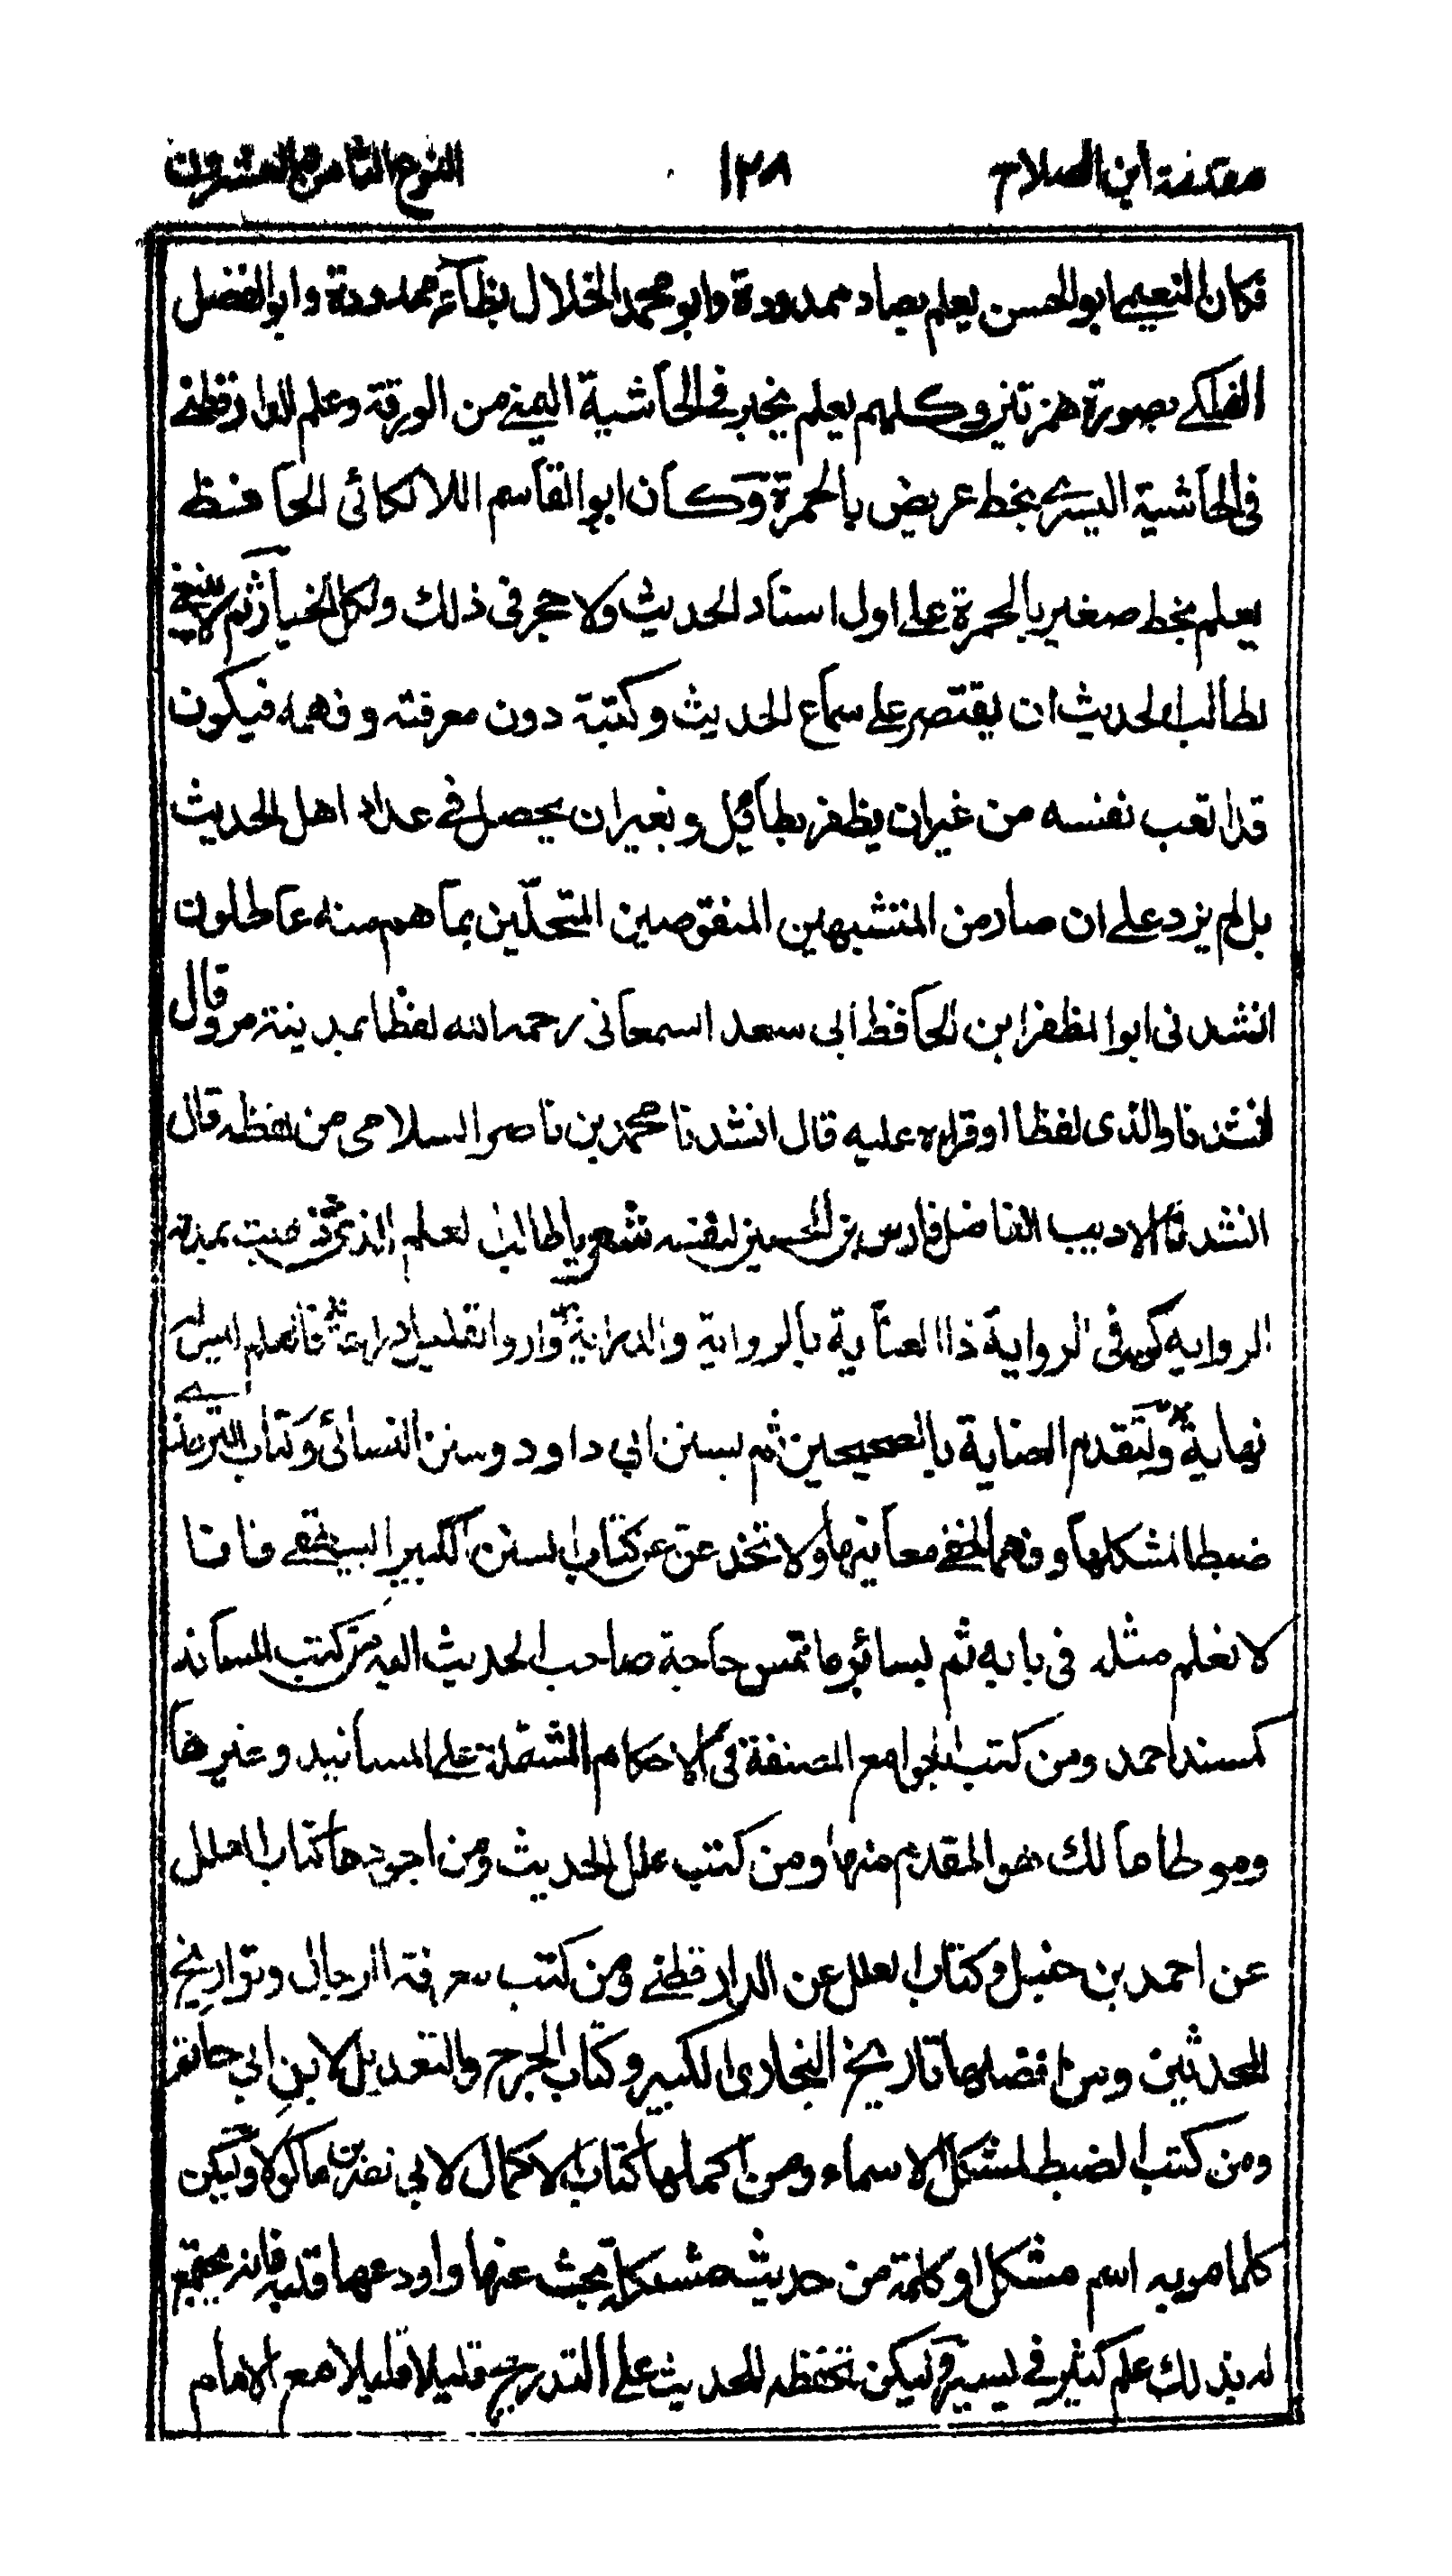 مقدمة ابن الصلاح ١٢٨ النوع الثامن والعشرون
فكان النعيمي ابو الحسن يعلم بصاد ممدودة وابو محمد الخلال بطآء ممدودة وابو الفضل
الفلكي بصورة همزتين وكلهم يعلم بحبر في الحاشية اليمنى من الورقة وعلم الدارقطني
في الحاشية اليسرى بخط عريض بالحمرة وكان ابو القاسم اللالكائي الحافظ
يعلم بخط صغير بالحمرة على اول اسناد الحديث ولا حجر في ذلك ولكل الخيار ثم لا ينبغي
لطالب الحديث ان يقتصر على سماع الحديث وكتبة دون معرفته وفهمه فيكون
قد اتعب نفسه من غير ان يظفر بطائل وبغير ان يحصل في عداد اهل الحديث
بل لم يزد على ان صار من المتشبهين المنقوصين المتحلّين بما هم منه عاطلون
انشدني ابو المظفر ابن الحافظ ابي سعد اسمعاني رحمه الله لفظا بمدينة مرو قال
انشدنا والذي لفظا او قراءه عليه قال انشدنا محمد بن ناصر السلامي من لفظه قال
انشدنا الاديب الفاضل فارس بن الحسين لنفسه شعر يا طالب لعلم الذي ذهبت بمدته
الروايه كن في الرواية ذا العناية بالرواية والدراية وارو القليل وراعه فالعلم ليس له
نهاية وليتقدم العناية بالصحيحين ثم بسنن ابي داود وسنن النسائي وكتاب الترمذي
ضبطا لمشكلها وفهما لخفي معانيها ولا تخدعن عن كتاب السنن الكبير البيهقي فانا
لا نعلم مثله في بابه ثم بسائر ما تمس حاجة صاحب الحديث اليه من كتب المساند
كمسند احمد ومن كتب الجوامع المصنفة في الاحكام المشتملة على المسانيد وغيرها
وموطا مالك هو المقدم منها ومن كتب علل الحديث ومن اجودها كتاب العلل
عن احمد بن حنبل وكتاب العلل عن الدارقطني ومن كتب معرفة الرجال وتواريخ
المحدثين ومن افضلها تاريخ البخاري الكبير وكتاب الجرح والتعديل لابن ابي حاتم
ومن كتب الضبط لمشكل الاسماء ومن اكملها كتاب الاكمال لابي نصر بن ماكولا وليكن
كلما مر به اسم مشكل او كلمة من حديث مشكلة بحث عنها واودعها قلبه فانه يجتمع
له بذلك علم كثير في يسير وليكن تحفظه للحديث على التدريج قليلا قليلا مع الامام